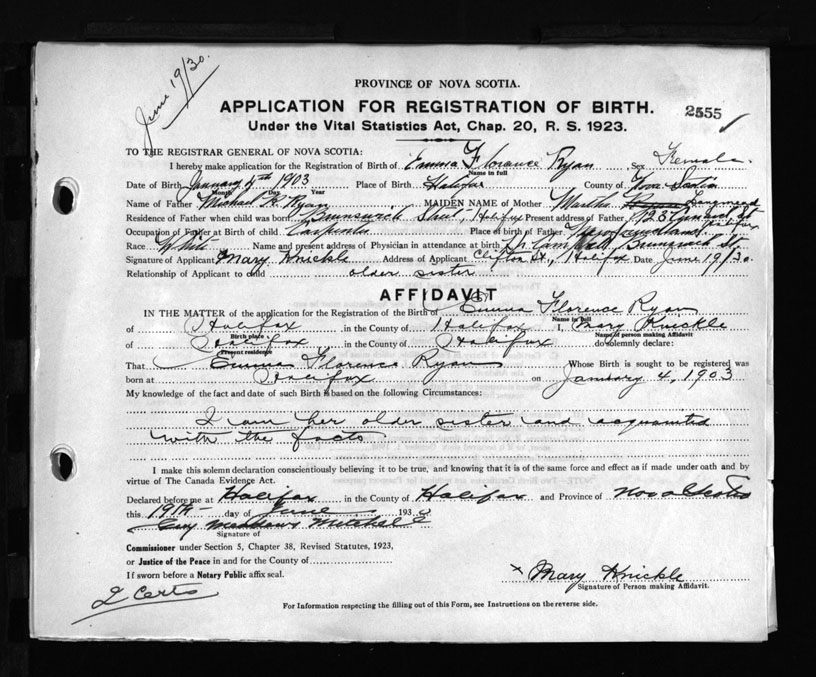 June 19/30.
PROVINCE OF NOVA SCOTIA.
APPLICATION FOR REGISTRATION OF BIRTH.
2555
Under the Vital Statistics Act, Chap. 20, R. S. 1923.
TO THE REGISTRAR GENERAL OF NOVA SCOTIA:
I hereby make application for the Registration of Birth of Emma Florance Ryan Sex Female
Name in full
Date of Birth January 4th 1903 Place of Birth Halifax County of Nova Scotia
Month Day Year
Name of Father Michael Ryan MAIDEN NAME of Mother Martha
Residence of Father when child was born Brunswick Street, Halifax Present address of Father, Halifax
Occupation of Father at Birth of child Carpenter Place of birth of Father, Newfoundland
Race White Name and present address of Physician in attendance at birth Dr. Campbell Brunswick St.
Signature of Applicant Mary Knickle Address of Applicant Clifton St., Halifax Date June 19/30.
Relationship of Applicant to child older sister
AFFIDAVIT
IN THE MATTER of the application for the Registration of the Birth of Emma Florence Ryan
Name in full
of Halifax in the County of Halifax I, Mary Knickle
Birth place Name of person making Affidavit
of Halifax in the County of Halifax do solemnly declare:
Present residence
That Emma Florence Ryan Whose Birth is sought to be registered was
born at Halifax on January 4, 1903
My knowledge of the fact and date of such Birth is based on the following Circumstances:
I am her older sister and acquainted
with the facts
I make this solemn declaration conscientiously believing it to be true, and knowing that it is of the same force and effect as if made under oath and by
virtue of The Canada Evidence Act.
Declared before me at Halifax in the County of Halifax and Province of Nova Scotia
this 19th day of June 193
Guy Meadows Mitchell
Signature of
Commissioner under Section 5, Chapter 38, Revised Statutes, 1923,
or Justice of the Peace in and for the County of
If sworn before a Notary Public affix seal.
x Mary Knickle
Signature of Person making Affidavit.
2 Certs
For Information respecting the filling out of this Form, see Instructions on the reverse side.